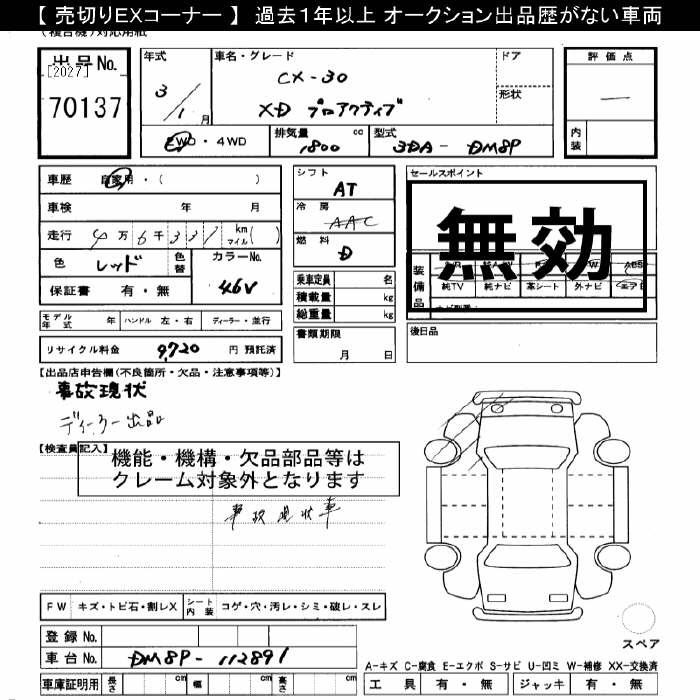 【 売切りEXコーナー 】 過去1年以上 オークション出品歴がない車両
(複合機) 対応用紙
出品No.
[2027]
70137
年式
3/1月
車名・グレード
CX-30
XD プロアクティブ
ドア
形状
評価点
—
内装
2WD・4WD
排気量 1800 cc
型式 3DA - DM8P
車歴 自家用・( )
車検 年 月
走行 4万6千331 km マイル( )
色 レッド 色替
カラーNo. 46V
保証書 有・無
シフト AT
冷房 AAC
燃料 D
乗車定員 名
積載量 kg
総重量 kg
書類期限
月 日
セールスポイント
無効
装備品
純TV 純ナビ 革シート 外ナビ エアB
後日品
モデル年式 年 ハンドル 左・右 ディーラー・並行
リサイクル料金 9,720 円 預託済
【出品店申告欄(不良箇所・欠品・注意事項等)】
事故現状
ディーラー出品
【検査員記入】
機能・機構・欠品部品等は
クレーム対象外となります
事故現状車
FW キズ・トビ石・割レX シート内装 コゲ・穴・汚レ・シミ・破レ・スレ
登録No.
車台No. DM8P-112891
車庫証明用 長さ cm 幅 cm 高さ cm
スペア
A-キズ C-腐食 E-エクボ S-サビ U-凹ミ W-補修 XX-交換済
工具 有・無 ジャッキ 有・無